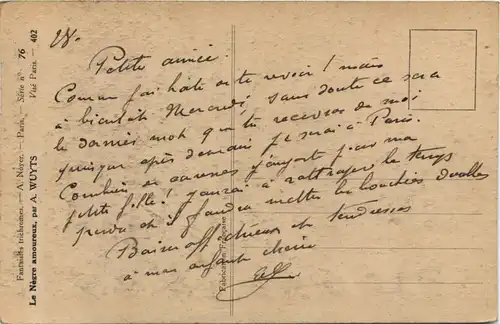 28.
Petite amie.
Comme j'ai hâte de te revoir ! mais
à bientôt. Mercredi, sans doute ce sera
le dernier mot que tu recevras de moi
puisque après demain je serai à Paris.
Combien de caresses j'aurai pour ma
petite fille ! j'aurai à rattraper le temps
perdu et il faudra mettre les bouchées doubles
Baisers affectueux et tendresses
à mon enfant chérie
Fantaisies trichromes. — A. Noyer. — Paris. — Série n° 76
Le Nègre amoureux, par A. WUYTS Visé Paris — 402